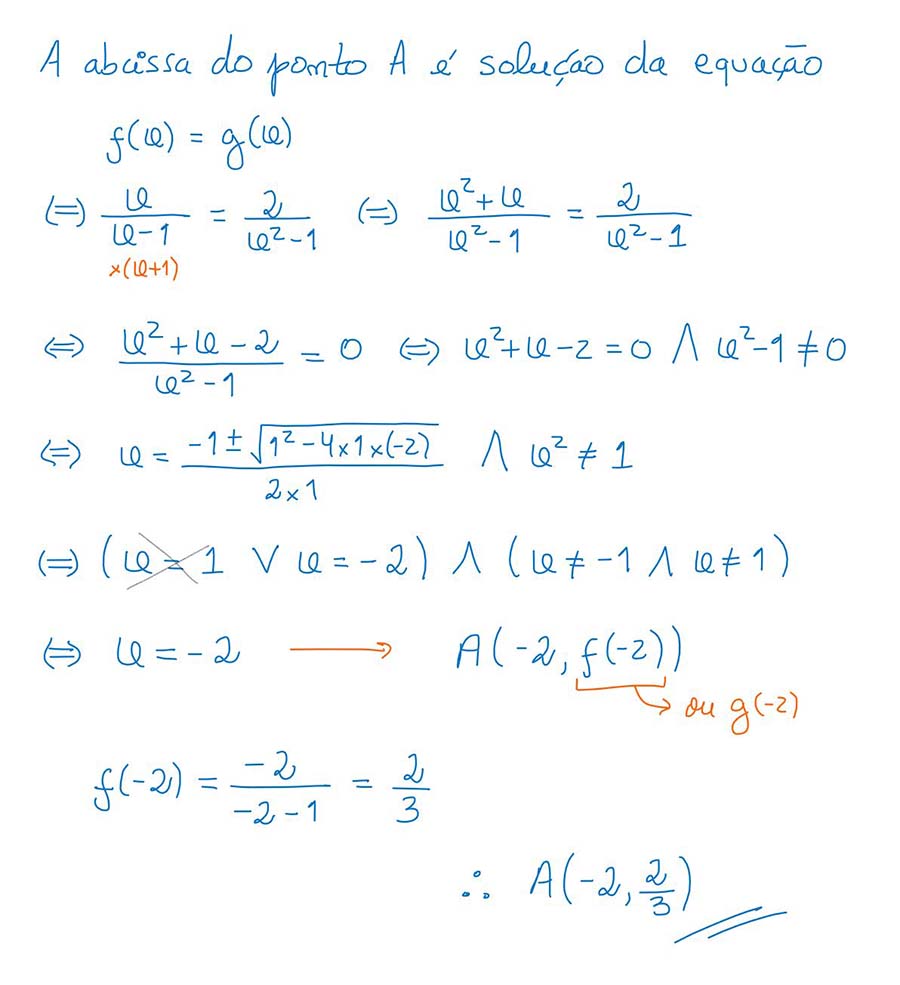 A abcissa do ponto A é solução da equação
f(x) = g(x)
(=) x/(x-1) = 2/(x²-1) (=) (x²+x)/(x²-1) = 2/(x²-1)
×(x+1)
⇔ (x²+x-2)/(x²-1) = 0 ⇔ x²+x-2=0 ∧ x²-1≠0
⇔ x = (-1±√(1²-4×1×(-2)))/(2×1) ∧ x² ≠ 1
(=) (x = 1 ∨ x = -2) ∧ (x ≠ -1 ∧ x ≠ 1)
⇔ x = -2 → A(-2, f(-2))
ou g(-2)
f(-2) = -2/(-2-1) = 2/3
∴ A(-2, 2/3)